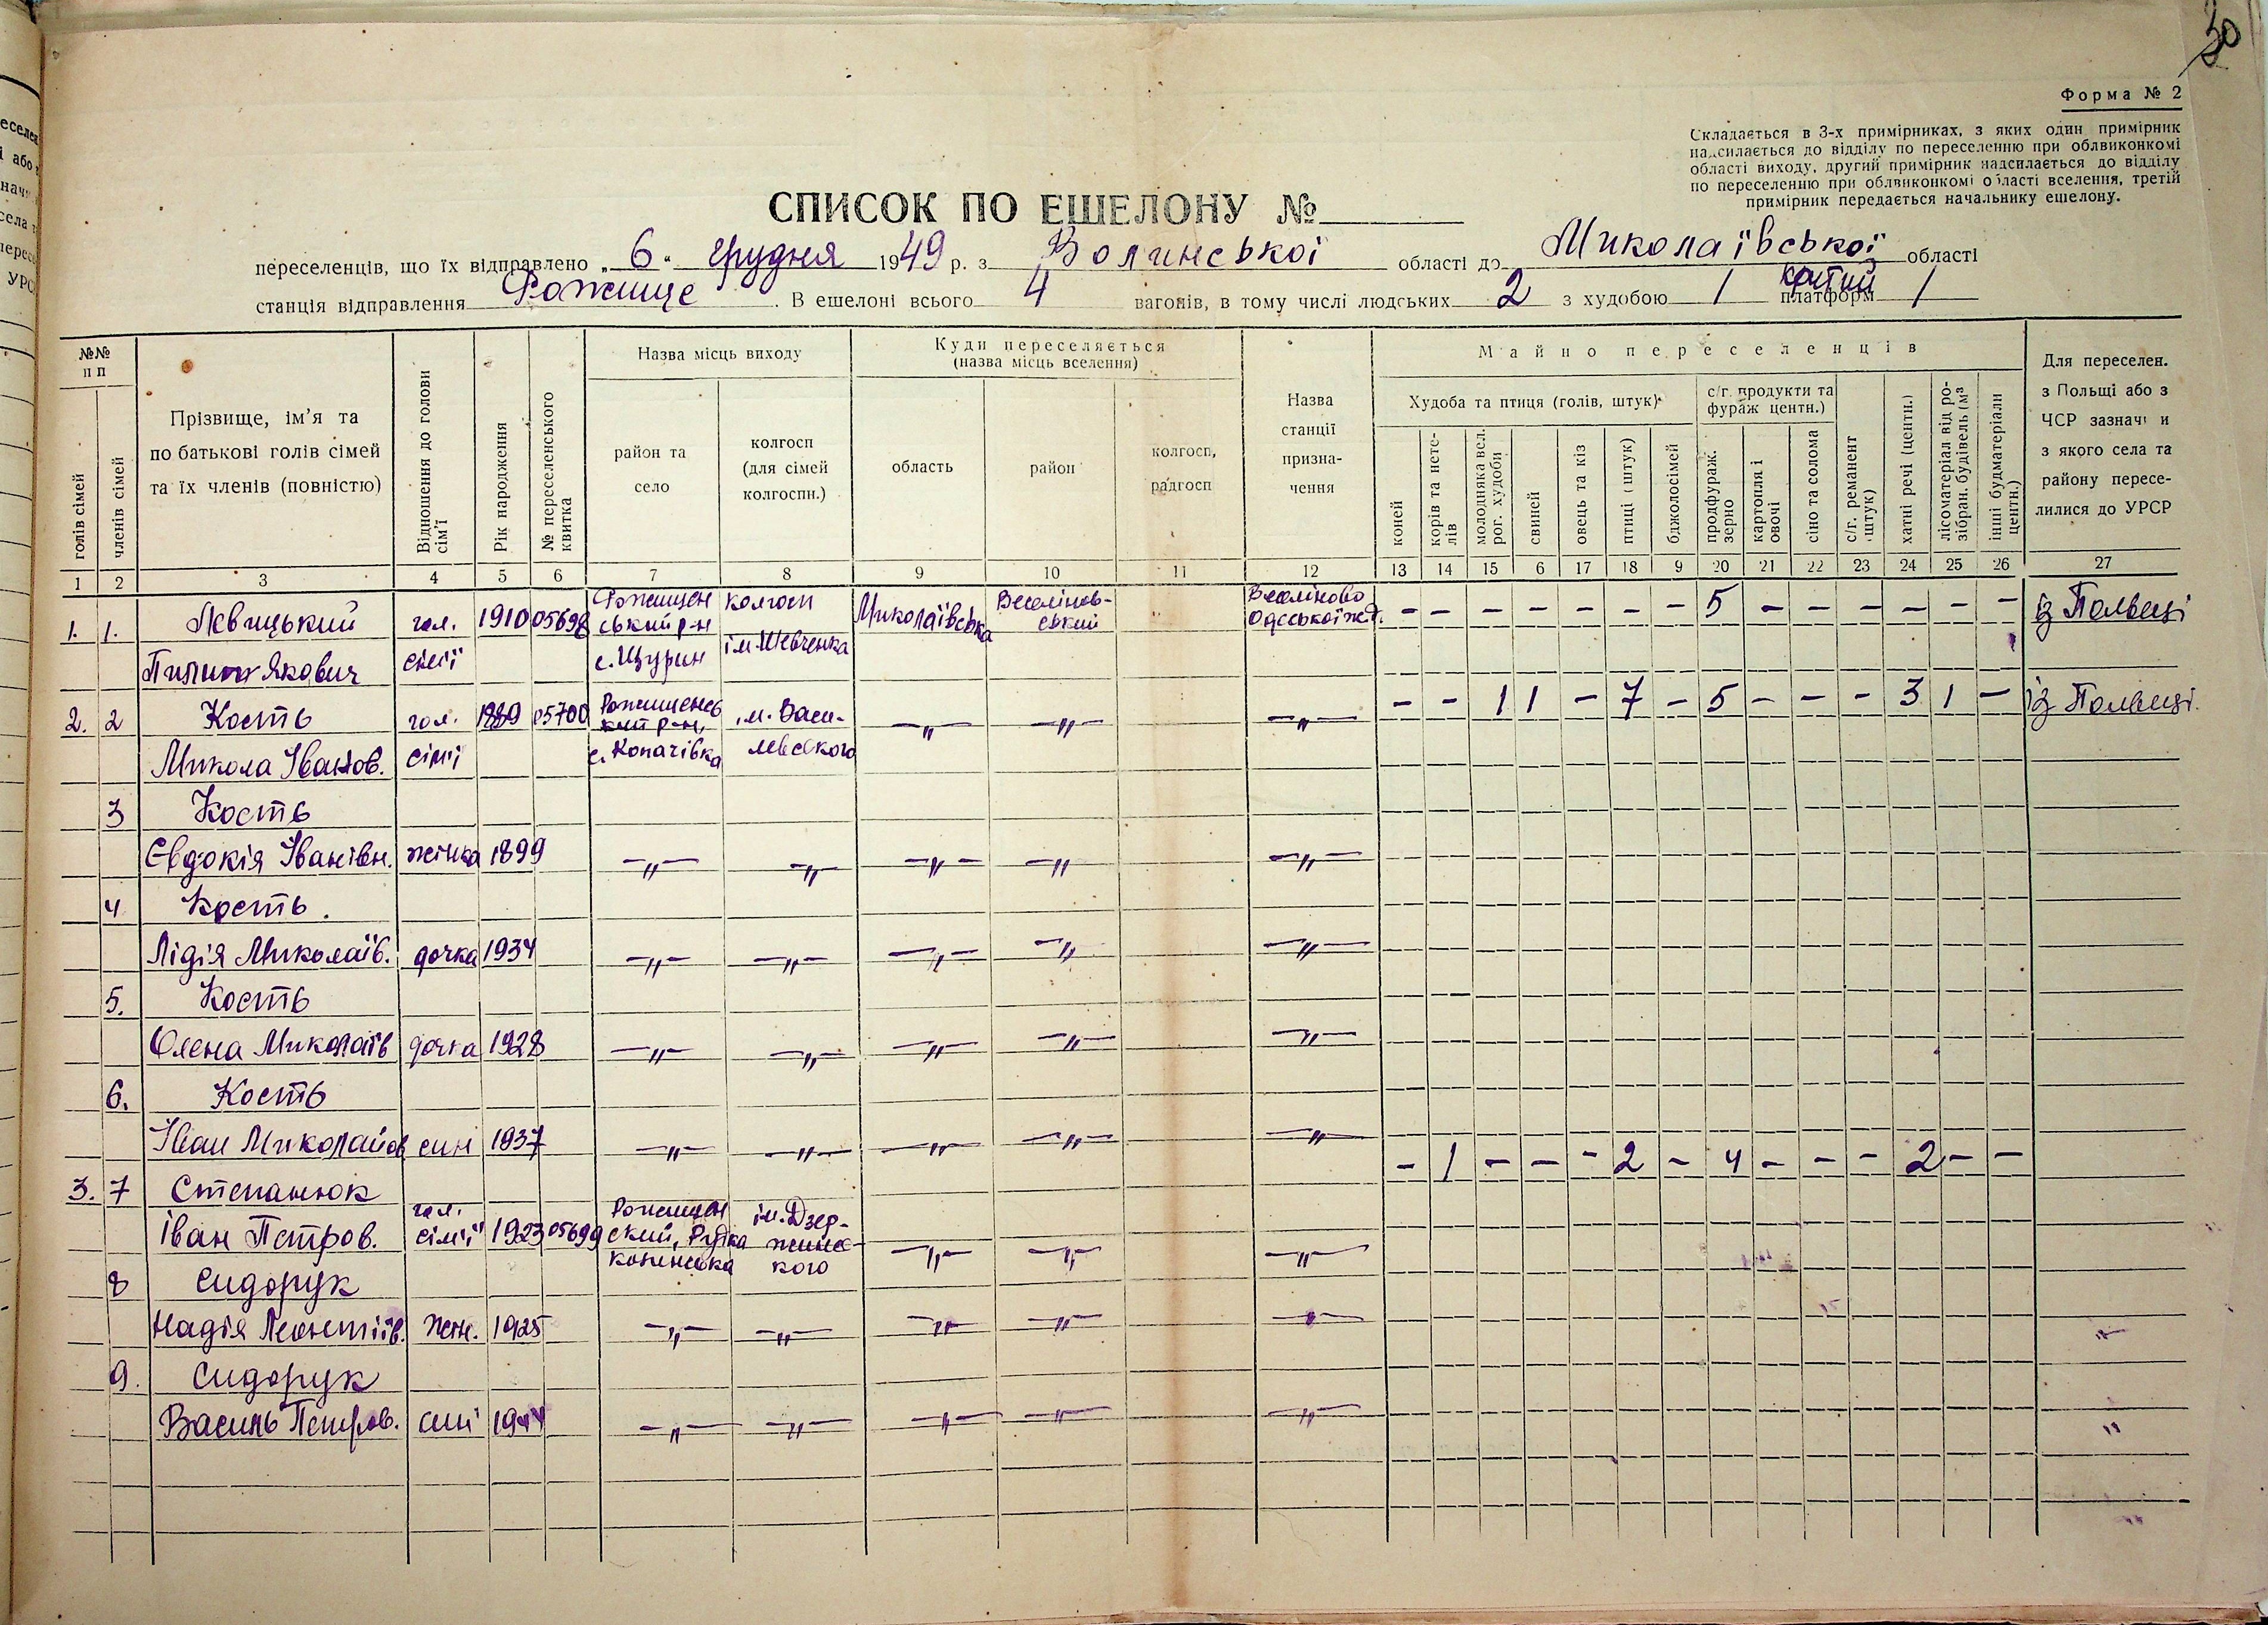 30
Форма № 2
Складається в 3-х примірниках, з яких один примірник
надсилається до відділу по переселенню при облвиконкомі
області виходу, другий примірник надсилається до відділу
по переселенню при облвиконкомі області вселення, третій
примірник передається начальнику ешелону.
СПИСОК ПО ЕШЕЛОНУ №
переселенців, що їх відправлено „6“ грудня 1949 р. з Волинської області до Миколаївської області
станція відправлення Рожище. В ешелоні всього 4 вагонів, в тому числі людських 2 з худобою 1 критий платформ 1
№№ п п
голів сімей
членів сімей
Прізвище, ім’я та
по батькові голів сімей
та їх членів (повністю)
Відношення до голови сім’ї
Рік народження
№ переселенського квитка
Назва місць виходу
район та село
колгосп (для сімей колгоспн.)
Куди переселяється
(назва місць вселення)
область
район
колгосп, радгосп
Назва станції призна-чення
Майно переселенців
Худоба та птиця (голів, штук)
коней
корів та нете-лів
молодняка вел. рог. худоби
свиней
овець та кіз
птиці (штук)
бджолосімей
с/г. продукти та фураж центн.)
продфураж. зерно
картопля і овочі
сіно та солома
с/г. реманент штук)
хатні речі (центн.)
лісоматеріал від ро-зібран. будівель (м³
інші будматеріали центн.)
Для переселен.
з Польщі або з
ЧСР зазначи и
з якого села та
району пересе-
лилися до УРСР
1 2 3 4 5 6 7 8 9 10 11 12 13 14 15 6 17 18 9 20 21 22 23 24 25 26 27
1. 1. Левицький гол. 1910 05698 Рожищен ський р-н колгосп Миколаївська Веселінов-ський Веселіново Одеської ж.д. - - - - - - - 5 - - - - - - із Польщі
Пилип Якович сім'ї с. Щурин ім. Шевченка
2. 2 Кость гол. 1889 05700 Рожищенсь кий р-н, ім. Васи- —„— —„— —„— - - 1 1 - 7 - 5 - - - 3 1 - із Польщі.
Микола Іванов. сім'ї с. Копачівка левського
3 Кость
Євдокія Іванівн. жінка 1899 —„— —„— —„— —„— —„—
4 Кость.
Лідія Миколаїв. дочка 1934 —„— —„— —„— —„— —„—
5. Кость
Олена Миколаїв дочка 1928 —„— —„— —„— —„— —„—
6. Кость
Іван Миколайов син 1937 —„— —„— —„— —„— —„—
3. 7 Степанюк - 1 - - - 2 - 4 - - - 2 - -
Іван Петров. гол. сім'ї 1923 05699 Рожищен ський, Рудка ім. Дзер-жинсь-кого —„— —„— —„—
8 Сидорук
Надія Леонтіїв. жін. 1925 —„— —„— —„— —„— —„— „
9. Сидорук
Василь Петров. син 1944 —„— —„— —„— —„— —„— „